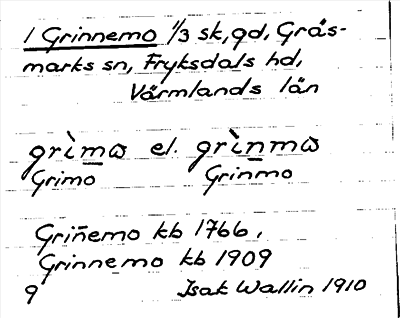 1 Grinnemo 1/3 sk, gd, Gräs-
marks sn, Fryksdals hd,
Värmlands län
grìmɷ el. grìnmɷ
Grimo Grinmo
Griñemo kb 1766,
Grinnemo kb 1909
9 Isak Wallin 1910